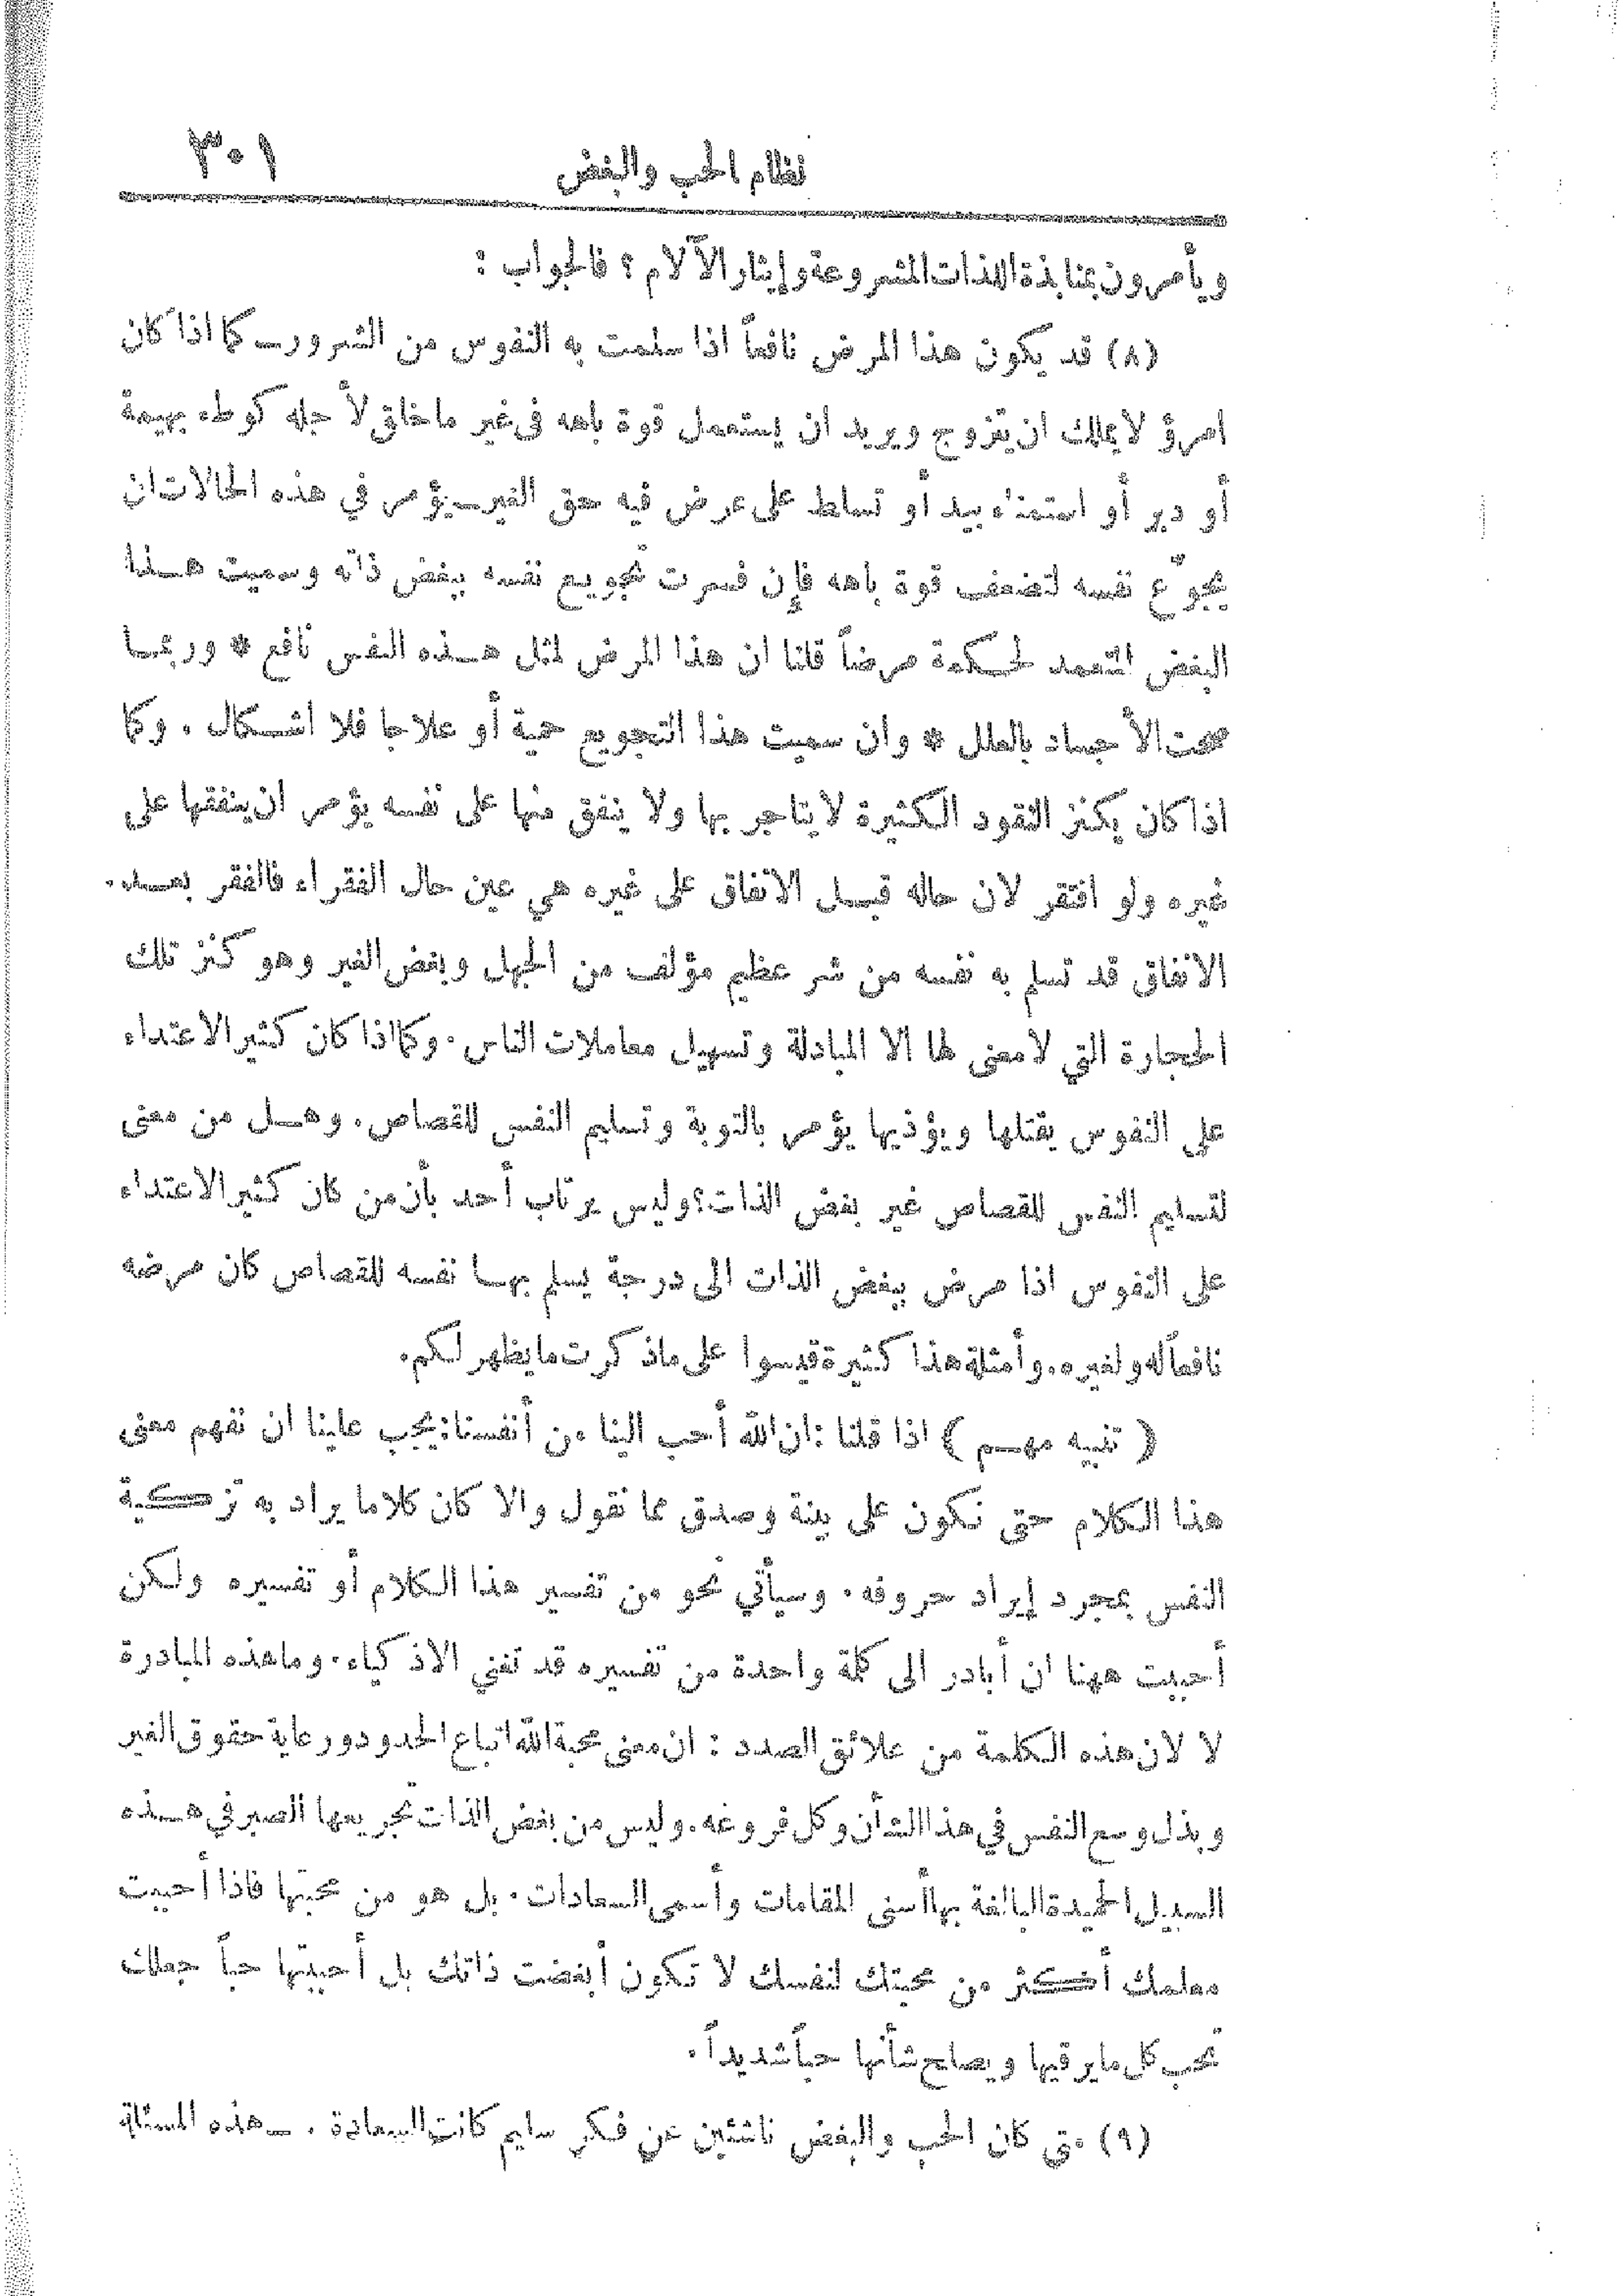 نظام الحب والبغض ٣٠١
ويأمرون بمنابذة اللذات المشروعة وإيثار الآلام ؟ فالجواب :
(٨) قد يكون هذا المرض نافعاً اذا سلمت به النفوس من الشرور ــ كما اذا كان
امرؤ لا يملك ان يتزوج ويريد ان يستعمل قوة باهه في غير ما خلق لأجله كوطء بهيمة
أو دبر أو استمناء بيد أو تسلط على عرض فيه حق الغير ــ يؤمر في هذه الحالات ان
يجوّع نفسه لتضعف قوة باهه فإن فسرت تجويع نفسه ببغض ذاته وسميت هـذا
البغض المتعمد لحـكمة مرضاً قلنا ان هذا المرض لمثل هـذه النفس نافع * وربمـا
صحت الأجساد بالعلل * وان سميت هذا التجويع حمية أو علاجا فلا اشـكال . وكما
اذا كان يكنز النقود الـكثيرة لا يتاجر بها ولا ينفق منها على نفسه يؤمر ان ينفقها على
غيره ولو افتقر لان حاله قبـل الانفاق على غيره هي عين حال الفقراء فالفقر بعـد
الانفاق قد تسلم به نفسه من شر عظيم مؤلف من الجهل وبغض الغير وهو كنز تلك
الحجارة التي لا معنى لها الا المبادلة وتسهيل معاملات الناس . وكما اذا كان كثير الاعتداء
على النفوس يقتلها ويؤذيها يؤمر بالتوبة وتسليم النفس للقصاص . وهـل من معنى
لتسليم النفس للقصاص غير بغض الذات ؟ وليس يرتاب أحد بأن من كان كثير الاعتداء
على النفوس اذا مرض ببغض الذات الى درجة يسلم بهـا نفسه للقصاص كان مرضه
نافعاً له ولغيره . وأمثلة هذا كثيرة قيسوا على ما ذكرت ما يظهر لـكم .
( تنبيه مهـم ) اذا قلنا : ان الله أحب الينا من أنفسنا : يجب علينا ان نفهم معنى
هذا الـكلام حتى نـكون على بينة وصدق مما نقول والا كان كلاما يراد به تزكـية
النفس بمجرد إيراد حروفه . وسيأتي نحو من تفسير هذا الـكلام أو تفسيره ولـكن
أحببت ههنا ان أبادر الى كلمة واحدة من تفسيره قد تغني الاذكياء . وما هذه المبادرة
لا لان هذه الـكلمة من علائق الصدد : ان معنى محبة الله اتباع الحدود ورعاية حقوق الغير
وبذل وسع النفس في هذا الشأن وكل فروعه . وليس من بغض الذات تجريعها الصبر في هـذه
السبيل الحميدة البالغة بها أسنى المقامات وأسمى السعادات . بل هو من محبتها فاذا أحببت
معلمك أكـثر من محبتك لنفسك لا تكون أبغضت ذاتك بل أحببتها حباً جعلك
تحب كل ما يرقيها ويصلح شأنها حباً شديداً .
(٩) متى كان الحب والبغض ناشئين عن فـكر سليم كانت السعادة . ــ هذه المسئلة